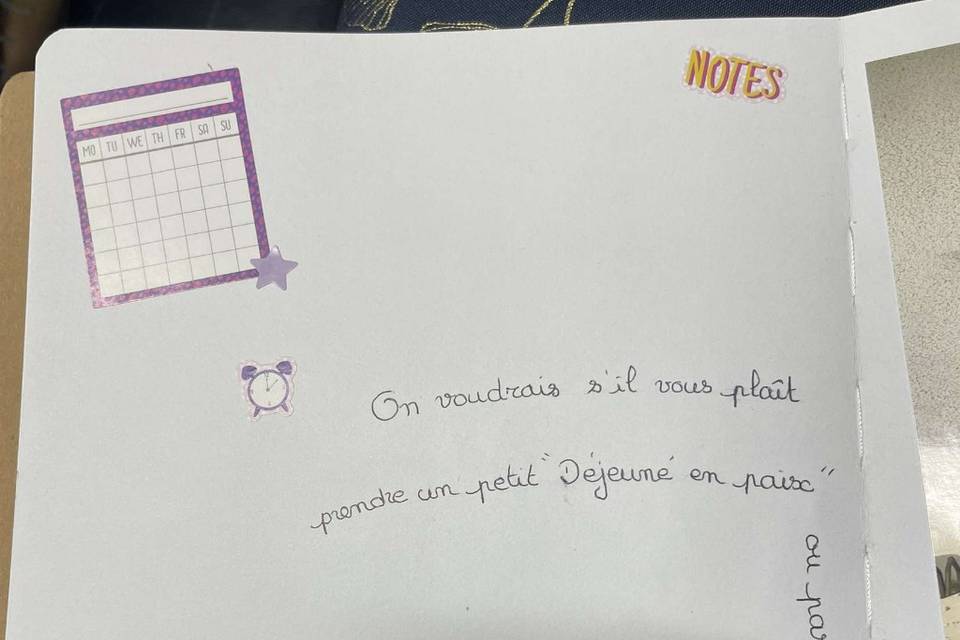 NOTES
MO TU WE TH FR SA SU
On voudrais s'il vous plaît
prendre un petit "Déjeuné en paix"
ou pas